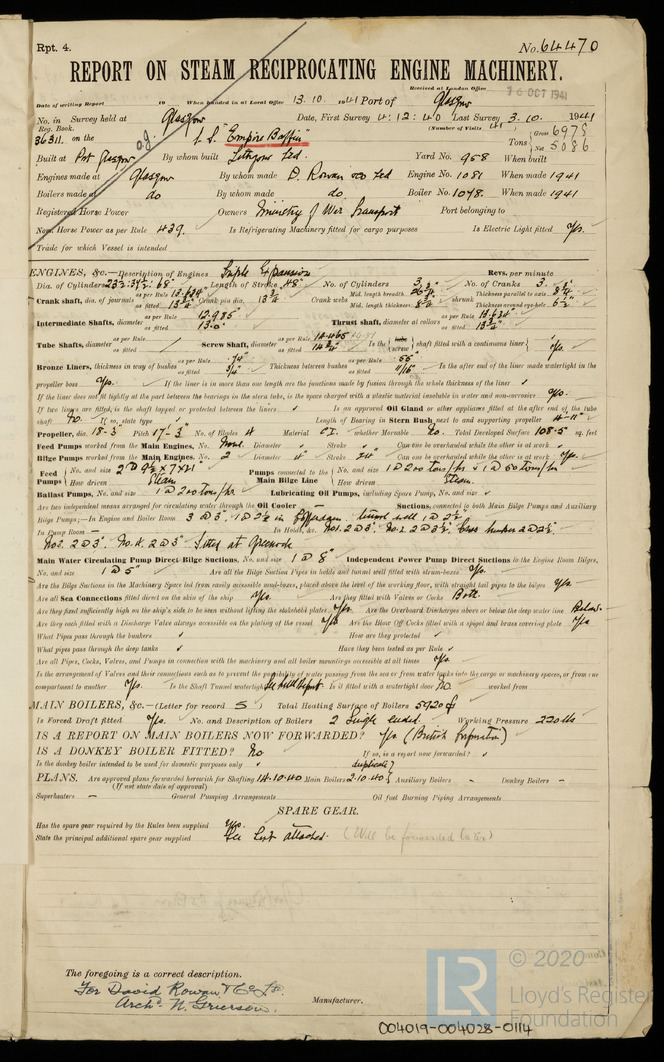 Rpt. 4. No. 64470
REPORT ON STEAM RECIPROCATING ENGINE MACHINERY.
Received at London Office 16 OCT 1941
Date of writing Report 19 When handed in at Local Office 13.10. 1941 Port of Glasgow
No. in Survey held at Glasgow Date, First Survey 4:12:40 Last Survey 3.10. 1941
Reg. Book. (Number of Visits 41)
36311. on the S.S. "Empire Baffin" Tons Gross 6978 Net 5086
Built at Port Glasgow By whom built Lithgows Ltd. Yard No. 958 When built
Engines made at Glasgow By whom made D. Rowan & Co Ltd Engine No. 1081 When made 1941
Boilers made at do By whom made do. Boiler No. 1078. When made 1941
Registered Horse Power Owners Ministry of War Transport Port belonging to
Nom. Horse Power as per Rule 439. Is Refrigerating Machinery fitted for cargo purposes Is Electric Light fitted Yes.
Trade for which Vessel is intended
ENGINES, &c.—Description of Engines Triple Expansion Revs. per minute
Dia. of Cylinders 23½:37½: 68" Length of Stroke 48" No. of Cylinders 3 No. of Cranks 3.
Crank shaft, dia. of journals as per Rule 13.634" as fitted 13¾" Crank pin dia. 13¾" Crank webs Mid. length breadth Mid. length thickness 8½" shrunk Thickness parallel to axis 8½" Thickness around eye-hole
Intermediate Shafts, diameter as per Rule 12.985" as fitted 13.0" Thrust shaft, diameter at collars as per Rule 13.634" as fitted 13¾"
Tube Shafts, diameter as per Rule as fitted Screw Shaft, diameter as per Rule 14.465 as fitted 14¾" Is the tube screw shaft fitted with a continuous liner Yes.
Bronze Liners, thickness in way of bushes as per Rule .74" as fitted ¾" Thickness between bushes as per Rule .55" as fitted 11/16" Is the after end of the liner made watertight in the
propeller boss Yes. If the liner is in more than one length are the junctions made by fusion through the whole thickness of the liner
If the liner does not fit tightly at the part between the bearings in the stern tube, is the space charged with a plastic material insoluble in water and non-corrosive Yes.
If two liners are fitted, is the shaft lapped or protected between the liners Is an approved Oil Gland or other appliance fitted at the after end of the tube
shaft No. If so, state type Length of Bearing in Stern Bush next to and supporting propeller 4-11"
Propeller, dia. 18-3" Pitch 17-3" No. of Blades 4 Material C.I. whether Moveable No. Total Developed Surface 108.5 sq. feet
Feed Pumps worked from the Main Engines, No. None. Diameter Stroke Can one be overhauled while the other is at work
Bilge Pumps worked from the Main Engines, No. 2 Diameter 4" Stroke 24" Can one be overhauled while the other is at work Yes.
Feed Pumps No. and size 2 @ 9½ x 7 x 21" How driven Steam Pumps connected to the Main Bilge Line No. and size 1 @ 200 tons/hr & 1 @ 60 tons/hr How driven Steam.
Ballast Pumps, No. and size 1 @ 200 tons/hr. Lubricating Oil Pumps, including Spare Pump, No. and size
Are two independent means arranged for circulating water through the Oil Cooler Suctions, connected to both Main Bilge Pumps and Auxiliary
Bilge Pumps;—In Engine and Boiler Room 3 @ 3", 1 @ 2½ in Cofferdam. tunnel well 1 @ 2½"
In Pump Room In Holds, &c. No.1. 2 @ 3". No.2. 2 @ 3½". Cross bunker 2 @ 2½".
No.3. 2 @ 3". No.4. 2 @ 3". Fitted at Greenock
Main Water Circulating Pump Direct Bilge Suctions, No. and size 1 @ 8" Independent Power Pump Direct Suctions to the Engine Room Bilges,
No. and size 1 @ 5" Are all the Bilge Suction Pipes in holds and tunnel well fitted with strum-boxes Yes.
Are the Bilge Suctions in the Machinery Space led from easily accessible mud-boxes, placed above the level of the working floor, with straight tail pipes to the bilges Yes.
Are all Sea Connections fitted direct on the skin of the ship Yes. Are they fitted with Valves or Cocks Both.
Are they fixed sufficiently high on the ship's side to be seen without lifting the stokehold plates Yes. Are the Overboard Discharges above or below the deep water line Below.
Are they each fitted with a Discharge Valve always accessible on the plating of the vessel Yes Are the Blow Off Cocks fitted with a spigot and brass covering plate Yes
What Pipes pass through the bunkers How are they protected
What pipes pass through the deep tanks Have they been tested as per Rule
Are all Pipes, Cocks, Valves, and Pumps in connection with the machinery and all boiler mountings accessible at all times Yes.
Is the arrangement of Valves and their connections such as to prevent the possibility of water passing from the sea or from water tanks into the cargo or machinery spaces, or from one
compartment to another Yes. Is the Shaft Tunnel watertight See hull Report. Is it fitted with a watertight door No. worked from
MAIN BOILERS, &c.—(Letter for record S) Total Heating Surface of Boilers 5920 ф
Is Forced Draft fitted Yes. No. and Description of Boilers 2 Single ended. Working Pressure 220 lbs
IS A REPORT ON MAIN BOILERS NOW FORWARDED? Yes (British Corporation)
IS A DONKEY BOILER FITTED? No If so, is a report now forwarded?
Is the donkey boiler intended to be used for domestic purposes only duplicate
PLANS. Are approved plans forwarded herewith for Shafting 14.10.40 Main Boilers 2.10.40 Auxiliary Boilers – Donkey Boilers –
(If not state date of approval)
Superheaters – General Pumping Arrangements Oil fuel Burning Piping Arrangements
SPARE GEAR.
Has the spare gear required by the Rules been supplied Yes.
State the principal additional spare gear supplied See List attached. (Will be forwarded later)
The foregoing is a correct description.
For David Rowan & Co Ltd.
Archd. N. Grierson. Manufacturer.
© 2020
LR Lloyd's Register
Foundation
004019-004028-0114